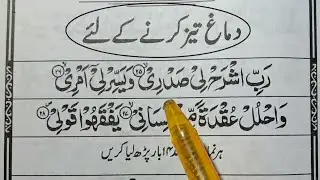 دماغ تیز کرنے کے لئے
رَبِّ اشْرَحْ لِیْ صَدْرِیْ ﴿۲۵﴾ وَیَسِّرْ لِیْ اَمْرِیْ ﴿۲۶﴾
وَاحْلُلْ عُقْدَةً مِّنْ لِّسَانِیْ ﴿۲۷﴾ یَفْقَهُوْا قَوْلِیْ ﴿۲۸﴾
ہر نماز بار پڑھ لیا کریں